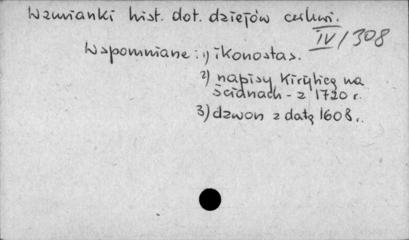 Wzmianki hist. dot. dziejów cerkwi.
IV/308
Wspomniane: 1) ikonostas.
2) napisy Kirylicą na
ścianach - z 1720 r.
3) dzwon z datą 1608.